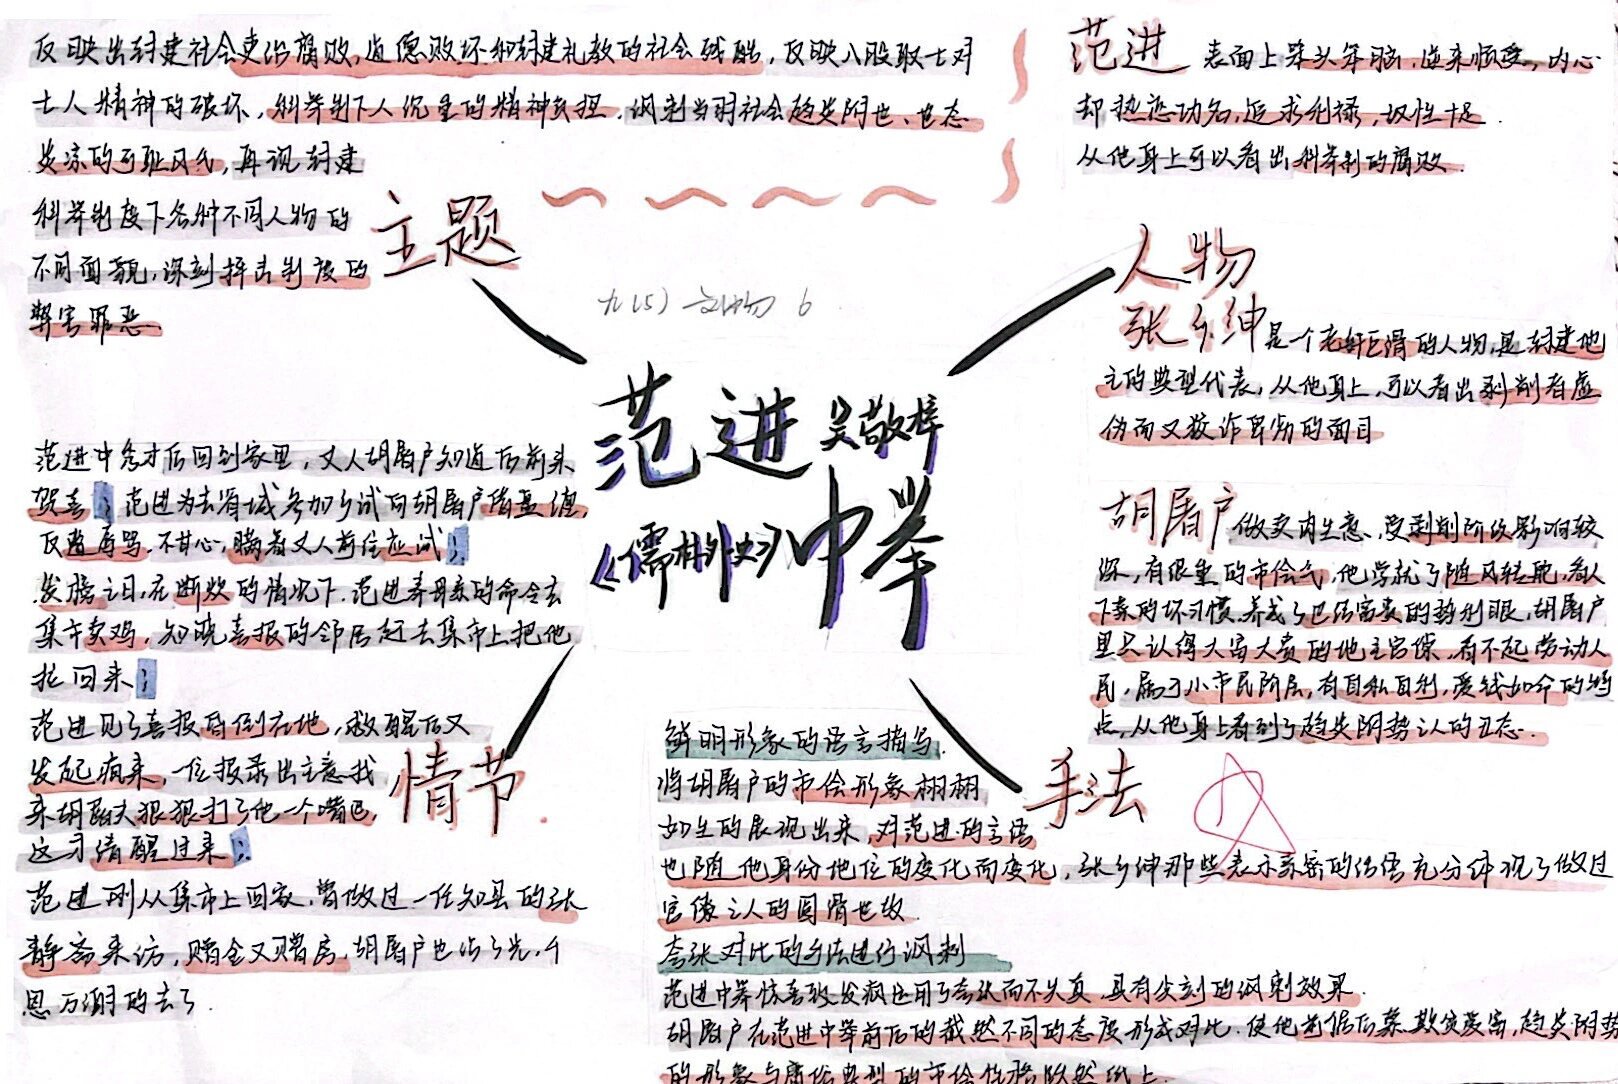 反映出封建社会吏治腐败,道德败坏和封建礼教的社会残酷,反映八股取士对
士人精神的破坏,科举制下人沉重的精神负担,讽刺当羽社会趋炎附世、世态
炎凉的可耻风气,再现封建
科举制度下各种不同人物的
不同面貌,深刻抨击制度的
弊害罪恶
主题
范进 表面上呆头呆脑,逆来顺受,内心
却热恋功名,追求利禄,奴性十足.
从他身上可以看出科举制的腐败.
人物
张乡绅是一个老奸巨滑的人物,是封建地
主的典型代表,从他身上,可以看出剥削者虚
伪而又狡诈卑劣的面目
胡屠户 做卖肉生意,受剥削阶级影响较
深,有很重的市侩气,他学就了随风转舵,看人
下菜的坏习惯,养成了巴结富贵的势利眼,胡屠户
里只认得大富大贵的地主官僚,看不起劳动人
民,属于小市民阶层,有自私自利,爱钱如命的特
点,从他身上看到了趋炎附势之人的丑态.
九(5) 6
范进 吴敬梓
《儒林外史》中举
范进中秀才后回到家里,丈人胡屠户知道后前来
贺喜;范进为去省城参加乡试向胡屠户借盘缠,
反遭辱骂.不甘心,瞒着丈人前往应试;
发榜之日,在断炊的情况下.范进弄母亲的命令去
集市卖鸡,知晓喜报的邻居赶去集市上把他
找回来;
范进见了喜报昏倒在地,救醒后又
发起疯来,一位报录出主意找
来胡屠夫狠狠打了他一个嘴巴,
这才清醒过来;
范进刚从集市上回家,曾做过一任知县的张
静斋来访,赠金又赠房,胡屠户也沾了光,千
恩万谢的去了.
情节
手法
鲜明形象的语言描写.
将胡屠户的市侩形象栩栩
如生的展现出来,对范进的言语
也随他身份地位的变化而变化,张乡绅那些表示亲密的话语充分体现了做过
官僚之人的圆滑世故.
夸张对比的手法进行讽刺
范进中举惊喜致发疯运用了夸张而不失真,具有尖刻的讽刺效果.
胡屠户在范进中举前后的截然不同的态度形成对比.使他前倨后恭欺贫爱富,趋炎附势
的形象与庸俗典型的市侩性格跃然纸上.